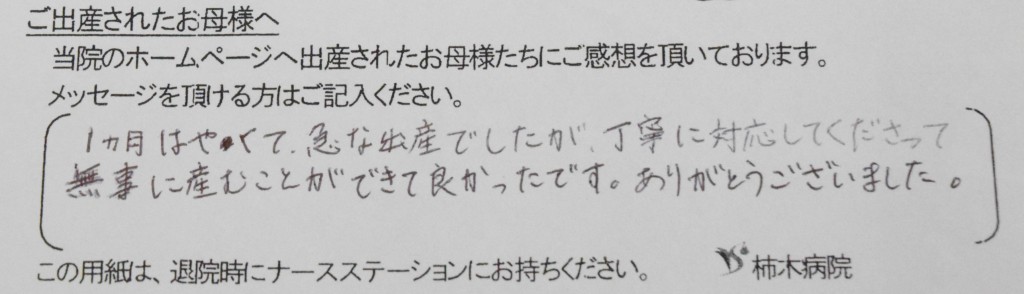 ご出産されたお母様へ
当院のホームページへ出産されたお母様たちにご感想を頂いております。
メッセージを頂ける方はご記入ください。
1ヵ月はやくて、急な出産でしたが、丁寧に対応してくださって
無事に産むことができて良かったです。ありがとうございました。
この用紙は、退院時にナースステーションにお持ちください。
柿木病院